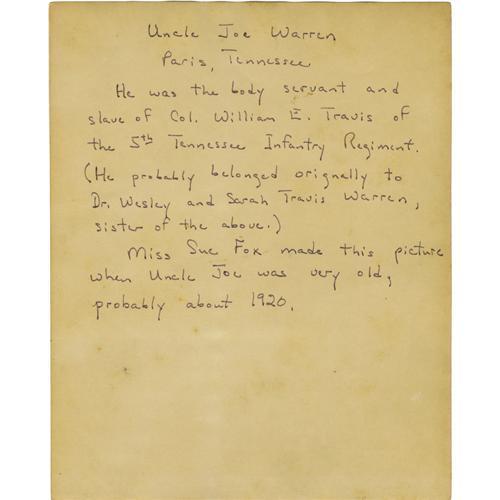 Uncle Joe Warren
Paris, Tennessee
He was the body servant and
slave of Col. William E. Travis of
the 5th Tennessee Infantry Regiment.
(He probably belonged orignelly to
Dr. Wesley and Sarah Travis Warren,
sister of the above.)
Miss Sue Fox made this picture
when Uncle Joe was very old,
probably about 1920.